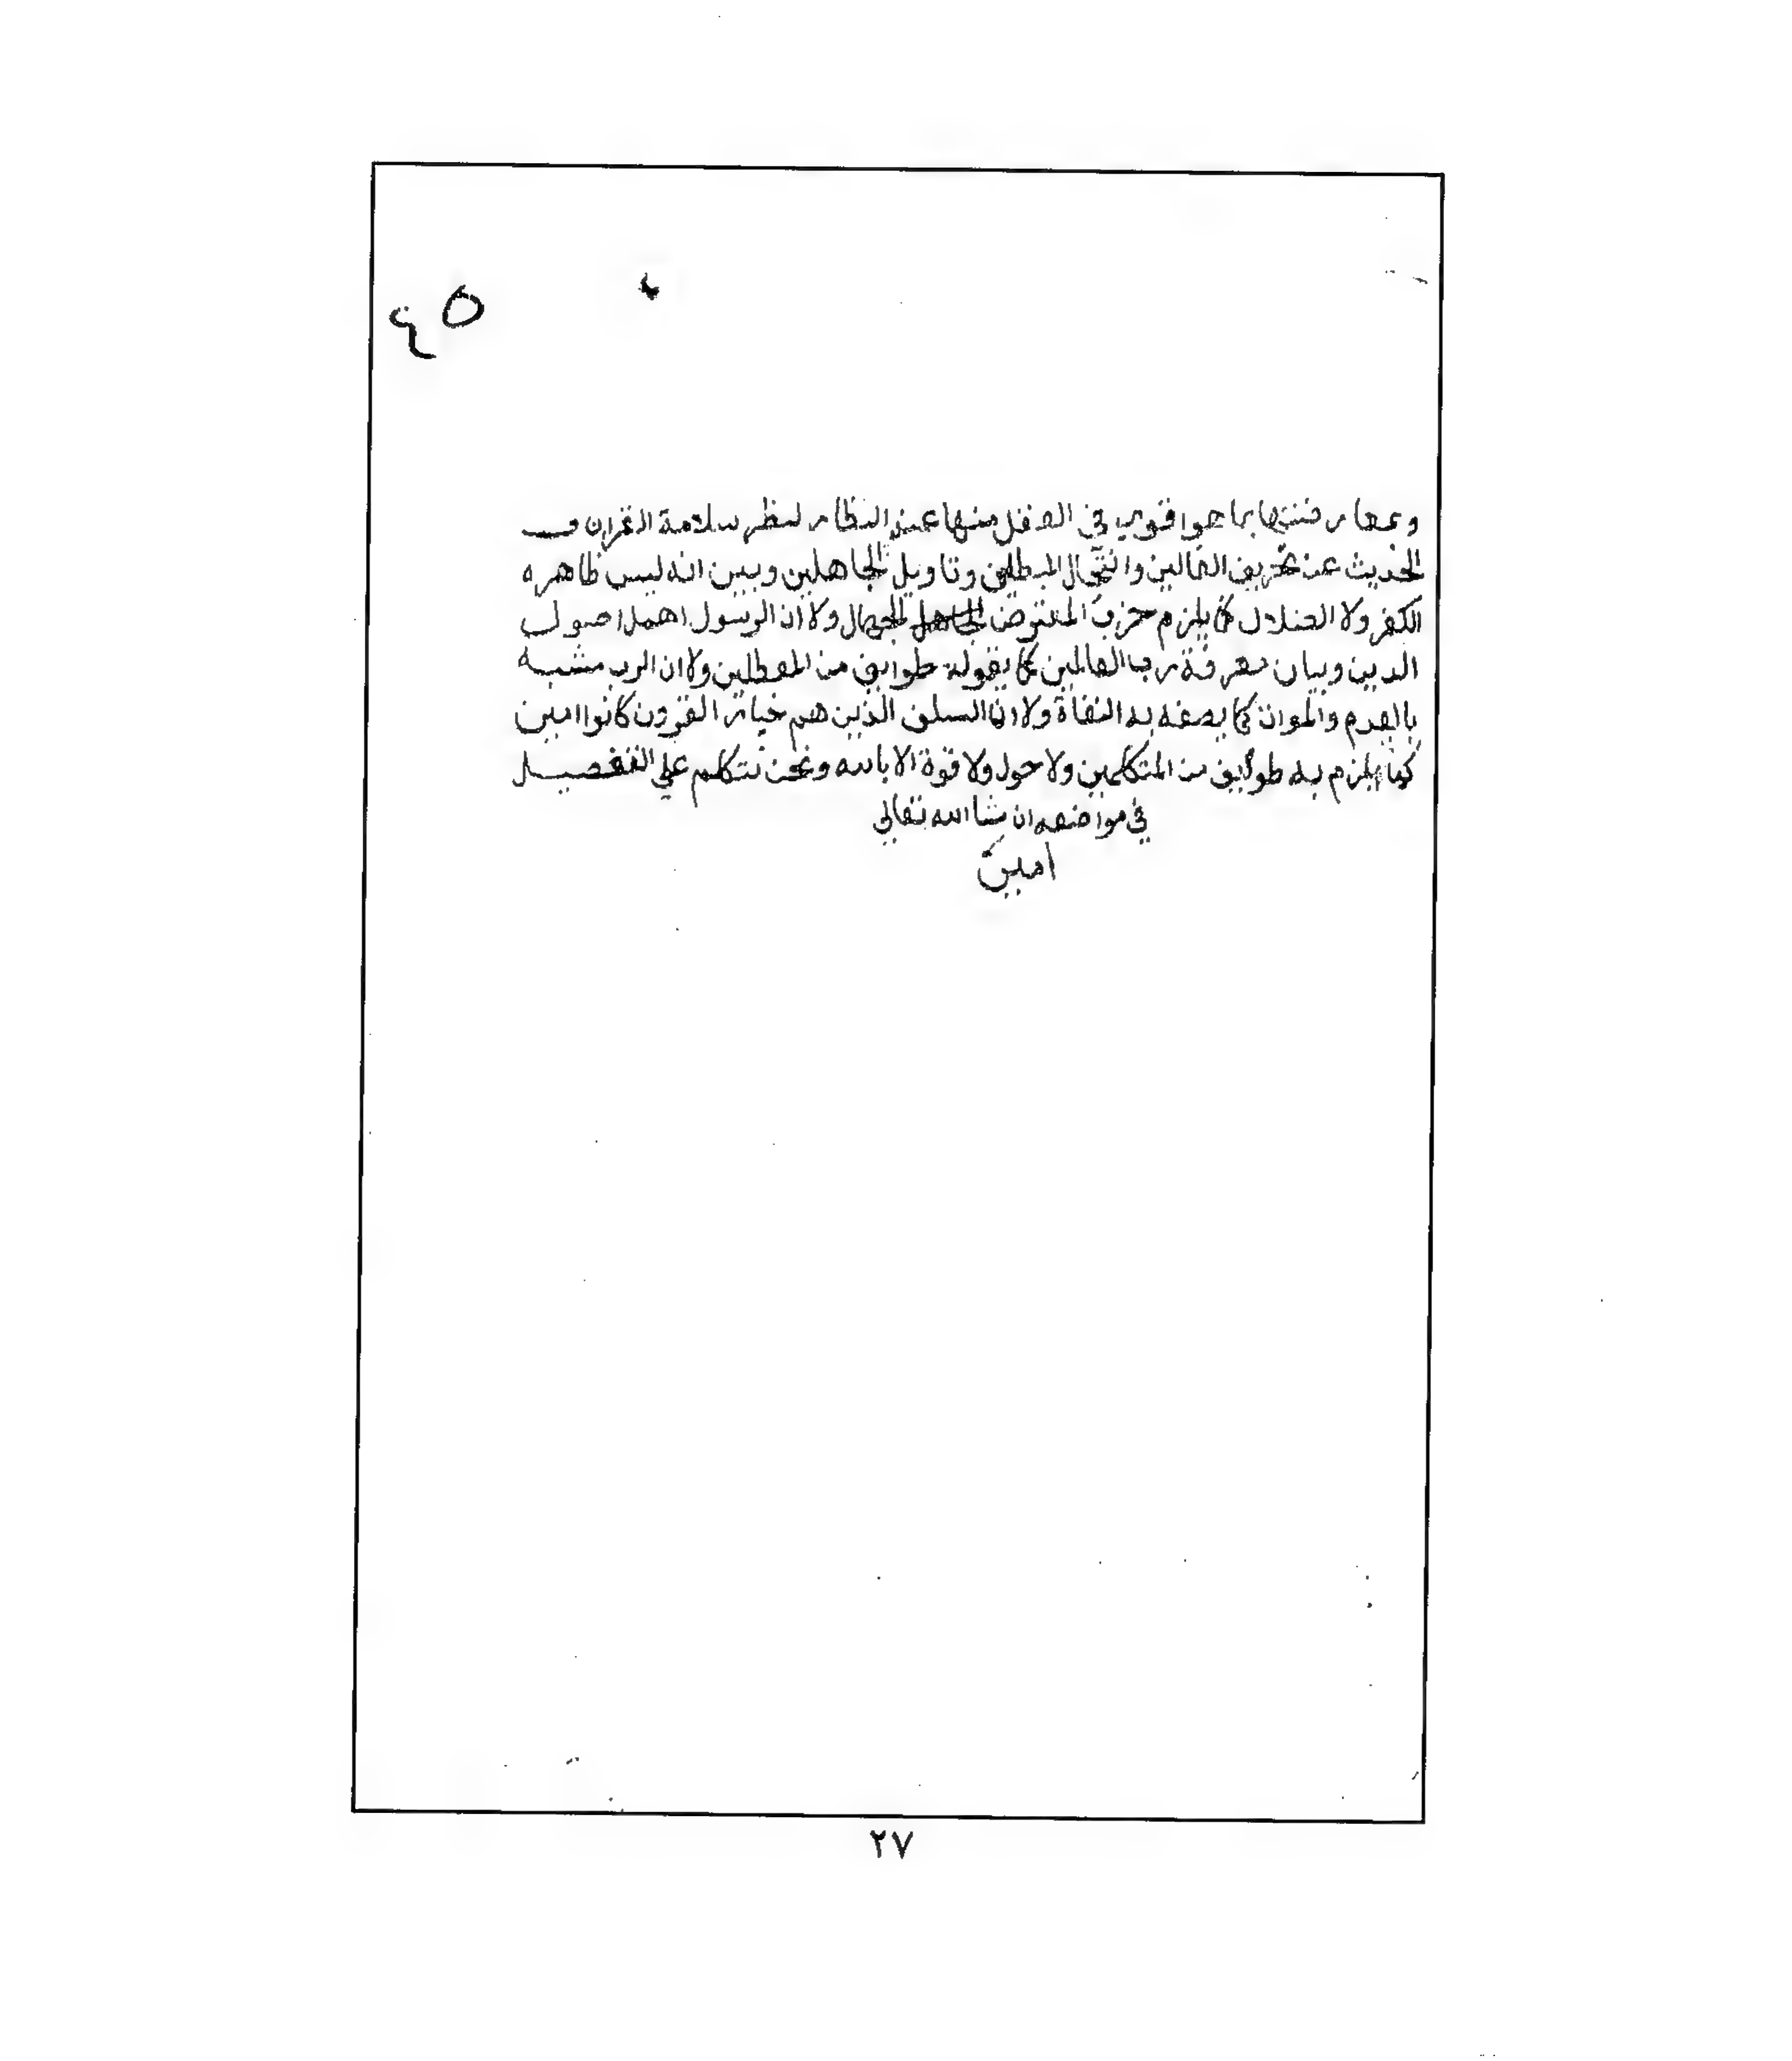 ٤٥
وبمعارضتها بما هوا قوي في العقل منها عند النظار ليظهر سلامة القران و
الحديث عن تحريف الغالين وانتحال المبطلين وتاويل الجاهلين ويبين انه ليس ظاهره
الكفر ولا الضلال كما يلزم حزب المعترض الجهال ولا ان الرسول اهمل اصول
الدين وبيان معرفة رب العالمين كما يقوله طوايف من المعطلين ولا ان الرب مشبه
بالعدم والموات كما يصفه به النفاة ولا ان السلف الذين هم خيار القرون كانوا اميين
كما يلزم به طوايف من المتكلمين ولا حول ولا قوة الا بالله ونحن نتكلم علي التفصيل
في مواضعه ان شا الله تعالي
امين
٢٧